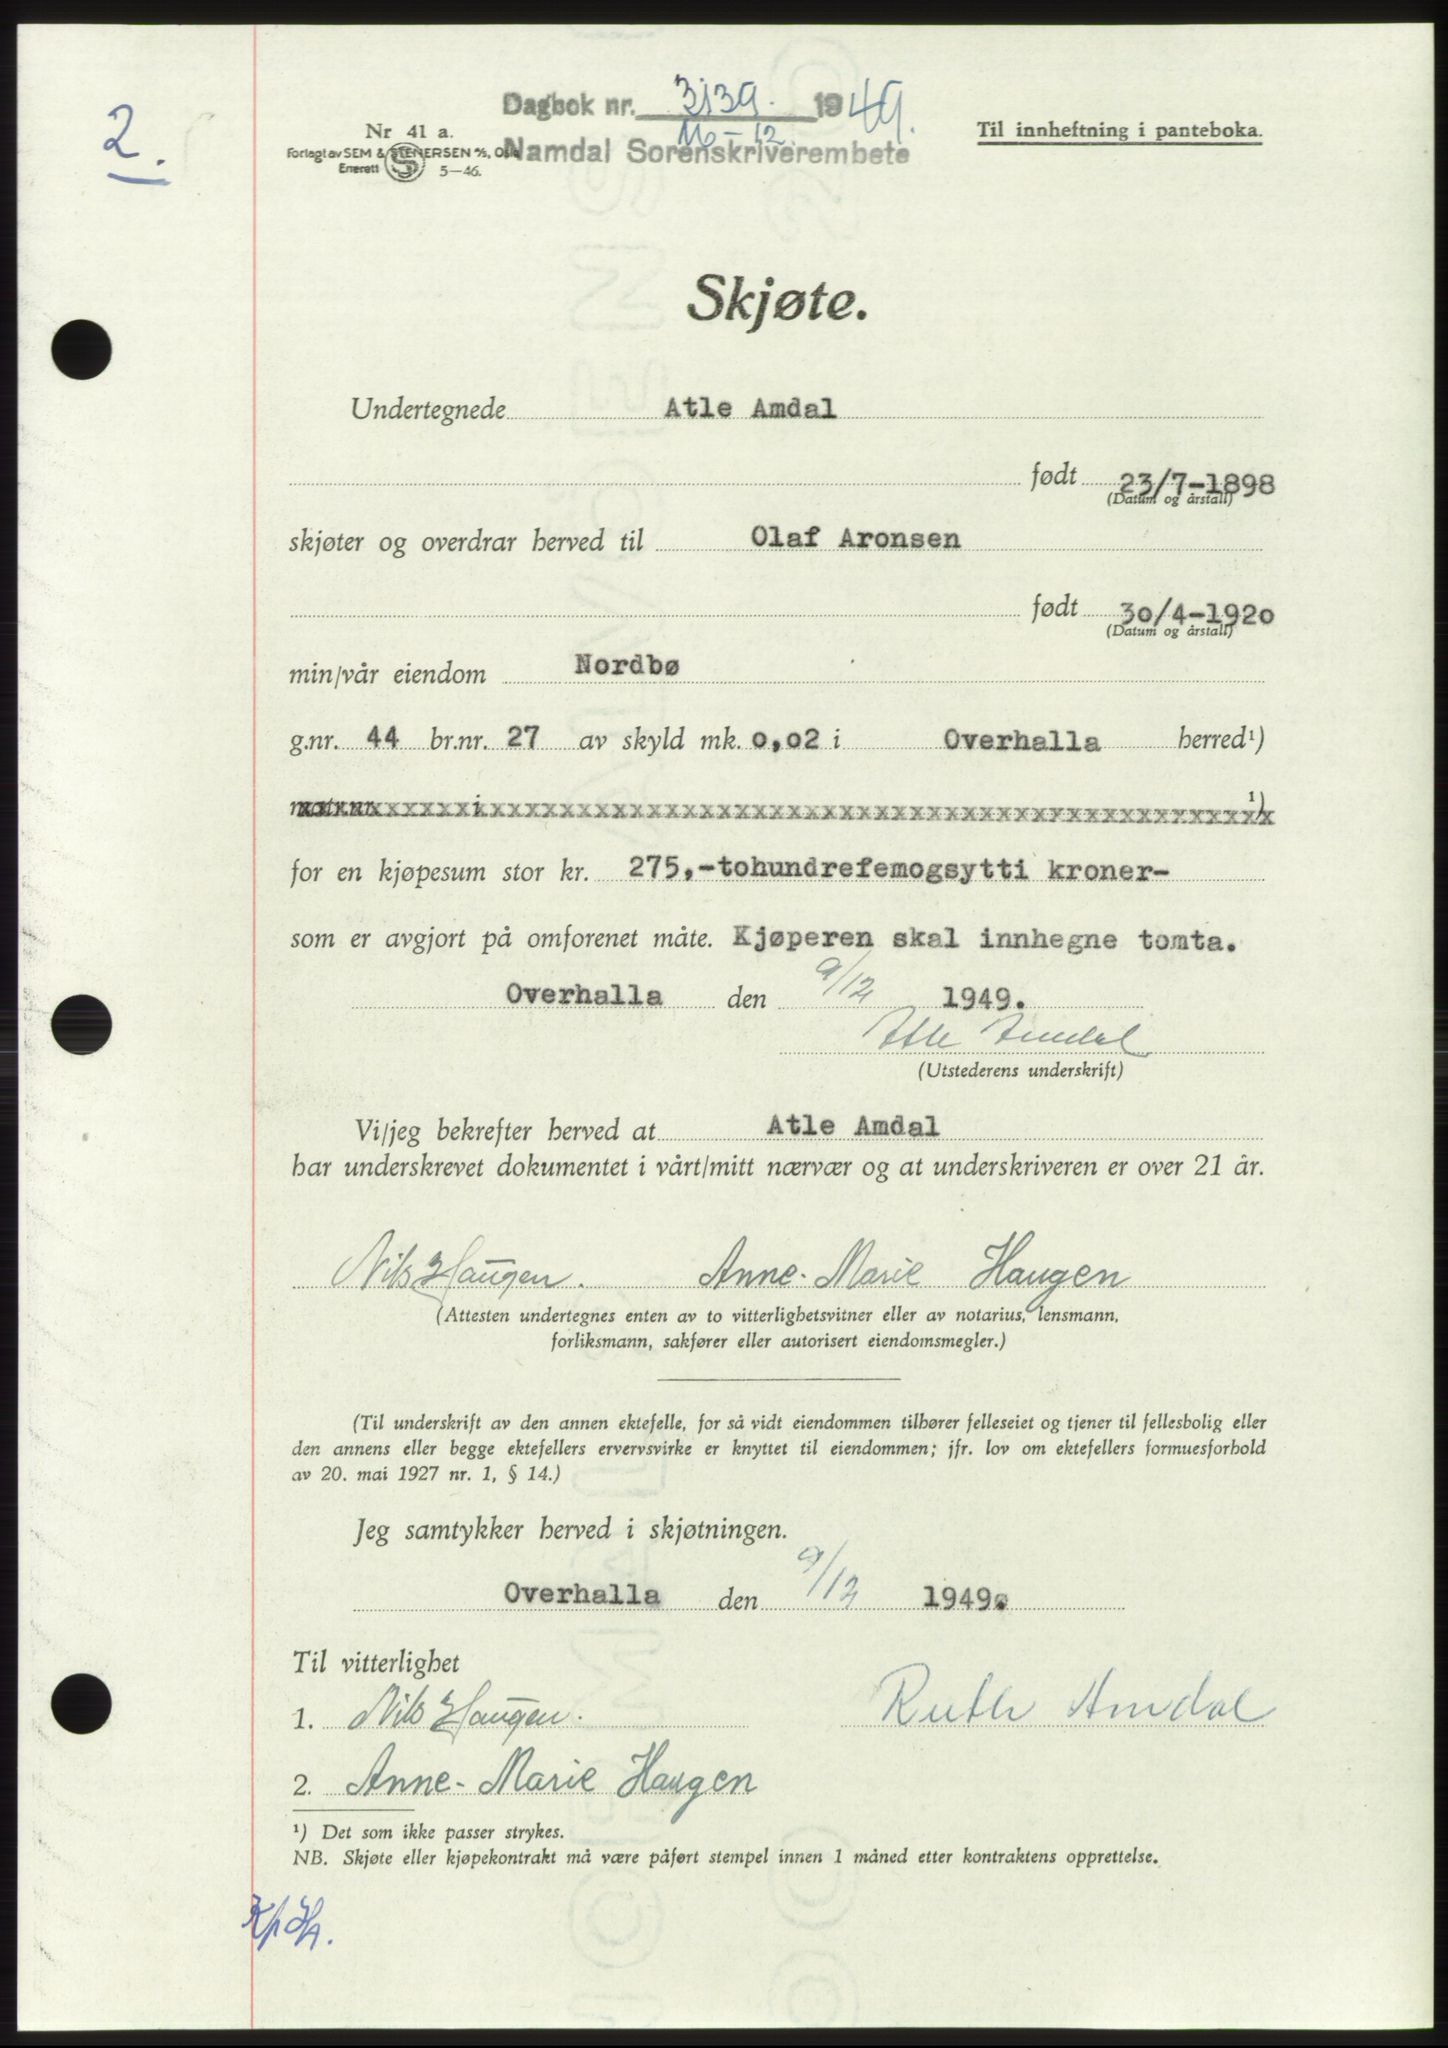 2.
Dagbok nr. 3139. 1949.
16-12.
Namdal Sorenskriverembete
Nr 41 a.
Forlagt av SEM & STENERSEN A/S, Oslo
Enerett S 5—46.
Til innheftning i panteboka.
Skjøte.
Undertegnede Atle Amdal
født 23/7-1898
(Datum og årstall)
skjøter og overdrar herved til Olaf Aronsen
født 30/4-1920
(Datum og årstall)
min/vår eiendom Nordbø
g.nr. 44 br.nr. 27 av skyld mk. 0,02 i Overhalla herred¹)
matr.nr. i ¹)
for en kjøpesum stor kr. 275,-tohundrefemogsytti kroner-
som er avgjort på omforenet måte. Kjøperen skal innhegne tomta.
Overhalla den 9/12 1949.
Atle Amdal
(Utstederens underskrift)
Vi/jeg bekrefter herved at Atle Amdal
har underskrevet dokumentet i vårt/mitt nærvær og at underskriveren er over 21 år.
Nils Haugen. Anne-Marie Haugen
(Attesten undertegnes enten av to vitterlighetsvitner eller av notarius, lensmann,
forliksmann, sakfører eller autorisert eiendomsmegler.)
(Til underskrift av den annen ektefelle, for så vidt eiendommen tilhører felleseiet og tjener til fellesbolig eller
den annens eller begge ektefellers ervervsvirke er knyttet til eiendommen; jfr. lov om ektefellers formuesforhold
av 20. mai 1927 nr. 1, § 14.)
Jeg samtykker herved i skjøtningen.
Overhalla den 9/12 1949.
Til vitterlighet
1. Nils Haugen. Ruth Amdal
2. Anne-Marie Haugen
¹) Det som ikke passer strykes.
NB. Skjøte eller kjøpekontrakt må være påført stempel innen 1 måned etter kontraktens opprettelse.